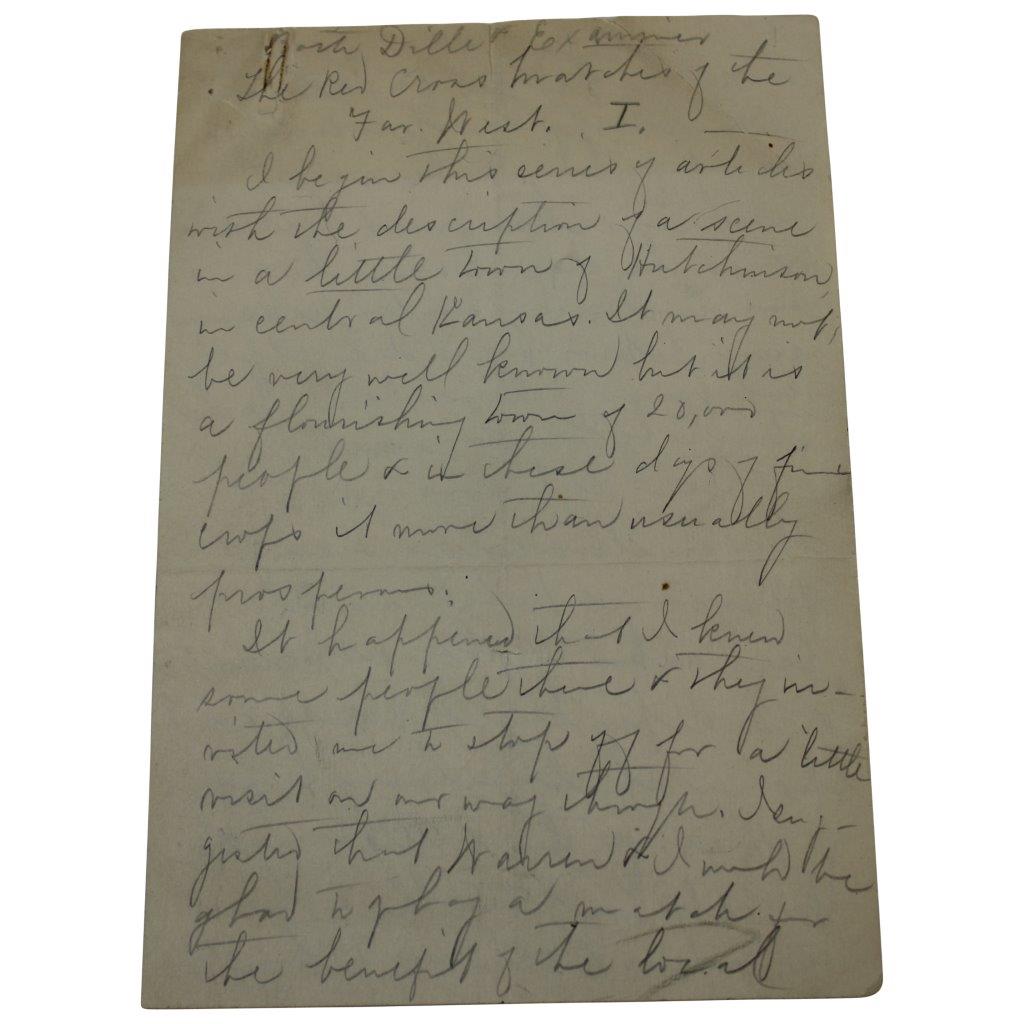 Examiner
The Red Cross Matches of the
Far. West. I.
I begin this series of articles
with the description of a scene
in a little town of Hutchinson,
in central Kansas. It may not,
be very well known but it is
a flourishing town of 20,000
people & in these days of fine
crops it more than usually
prosperous.
It happened that I knew
some people there & they in-
vited me to stop off for a little
visit on our way through. I sug-
gested that Warren & I would be
glad to play a match for
the benefit of the local